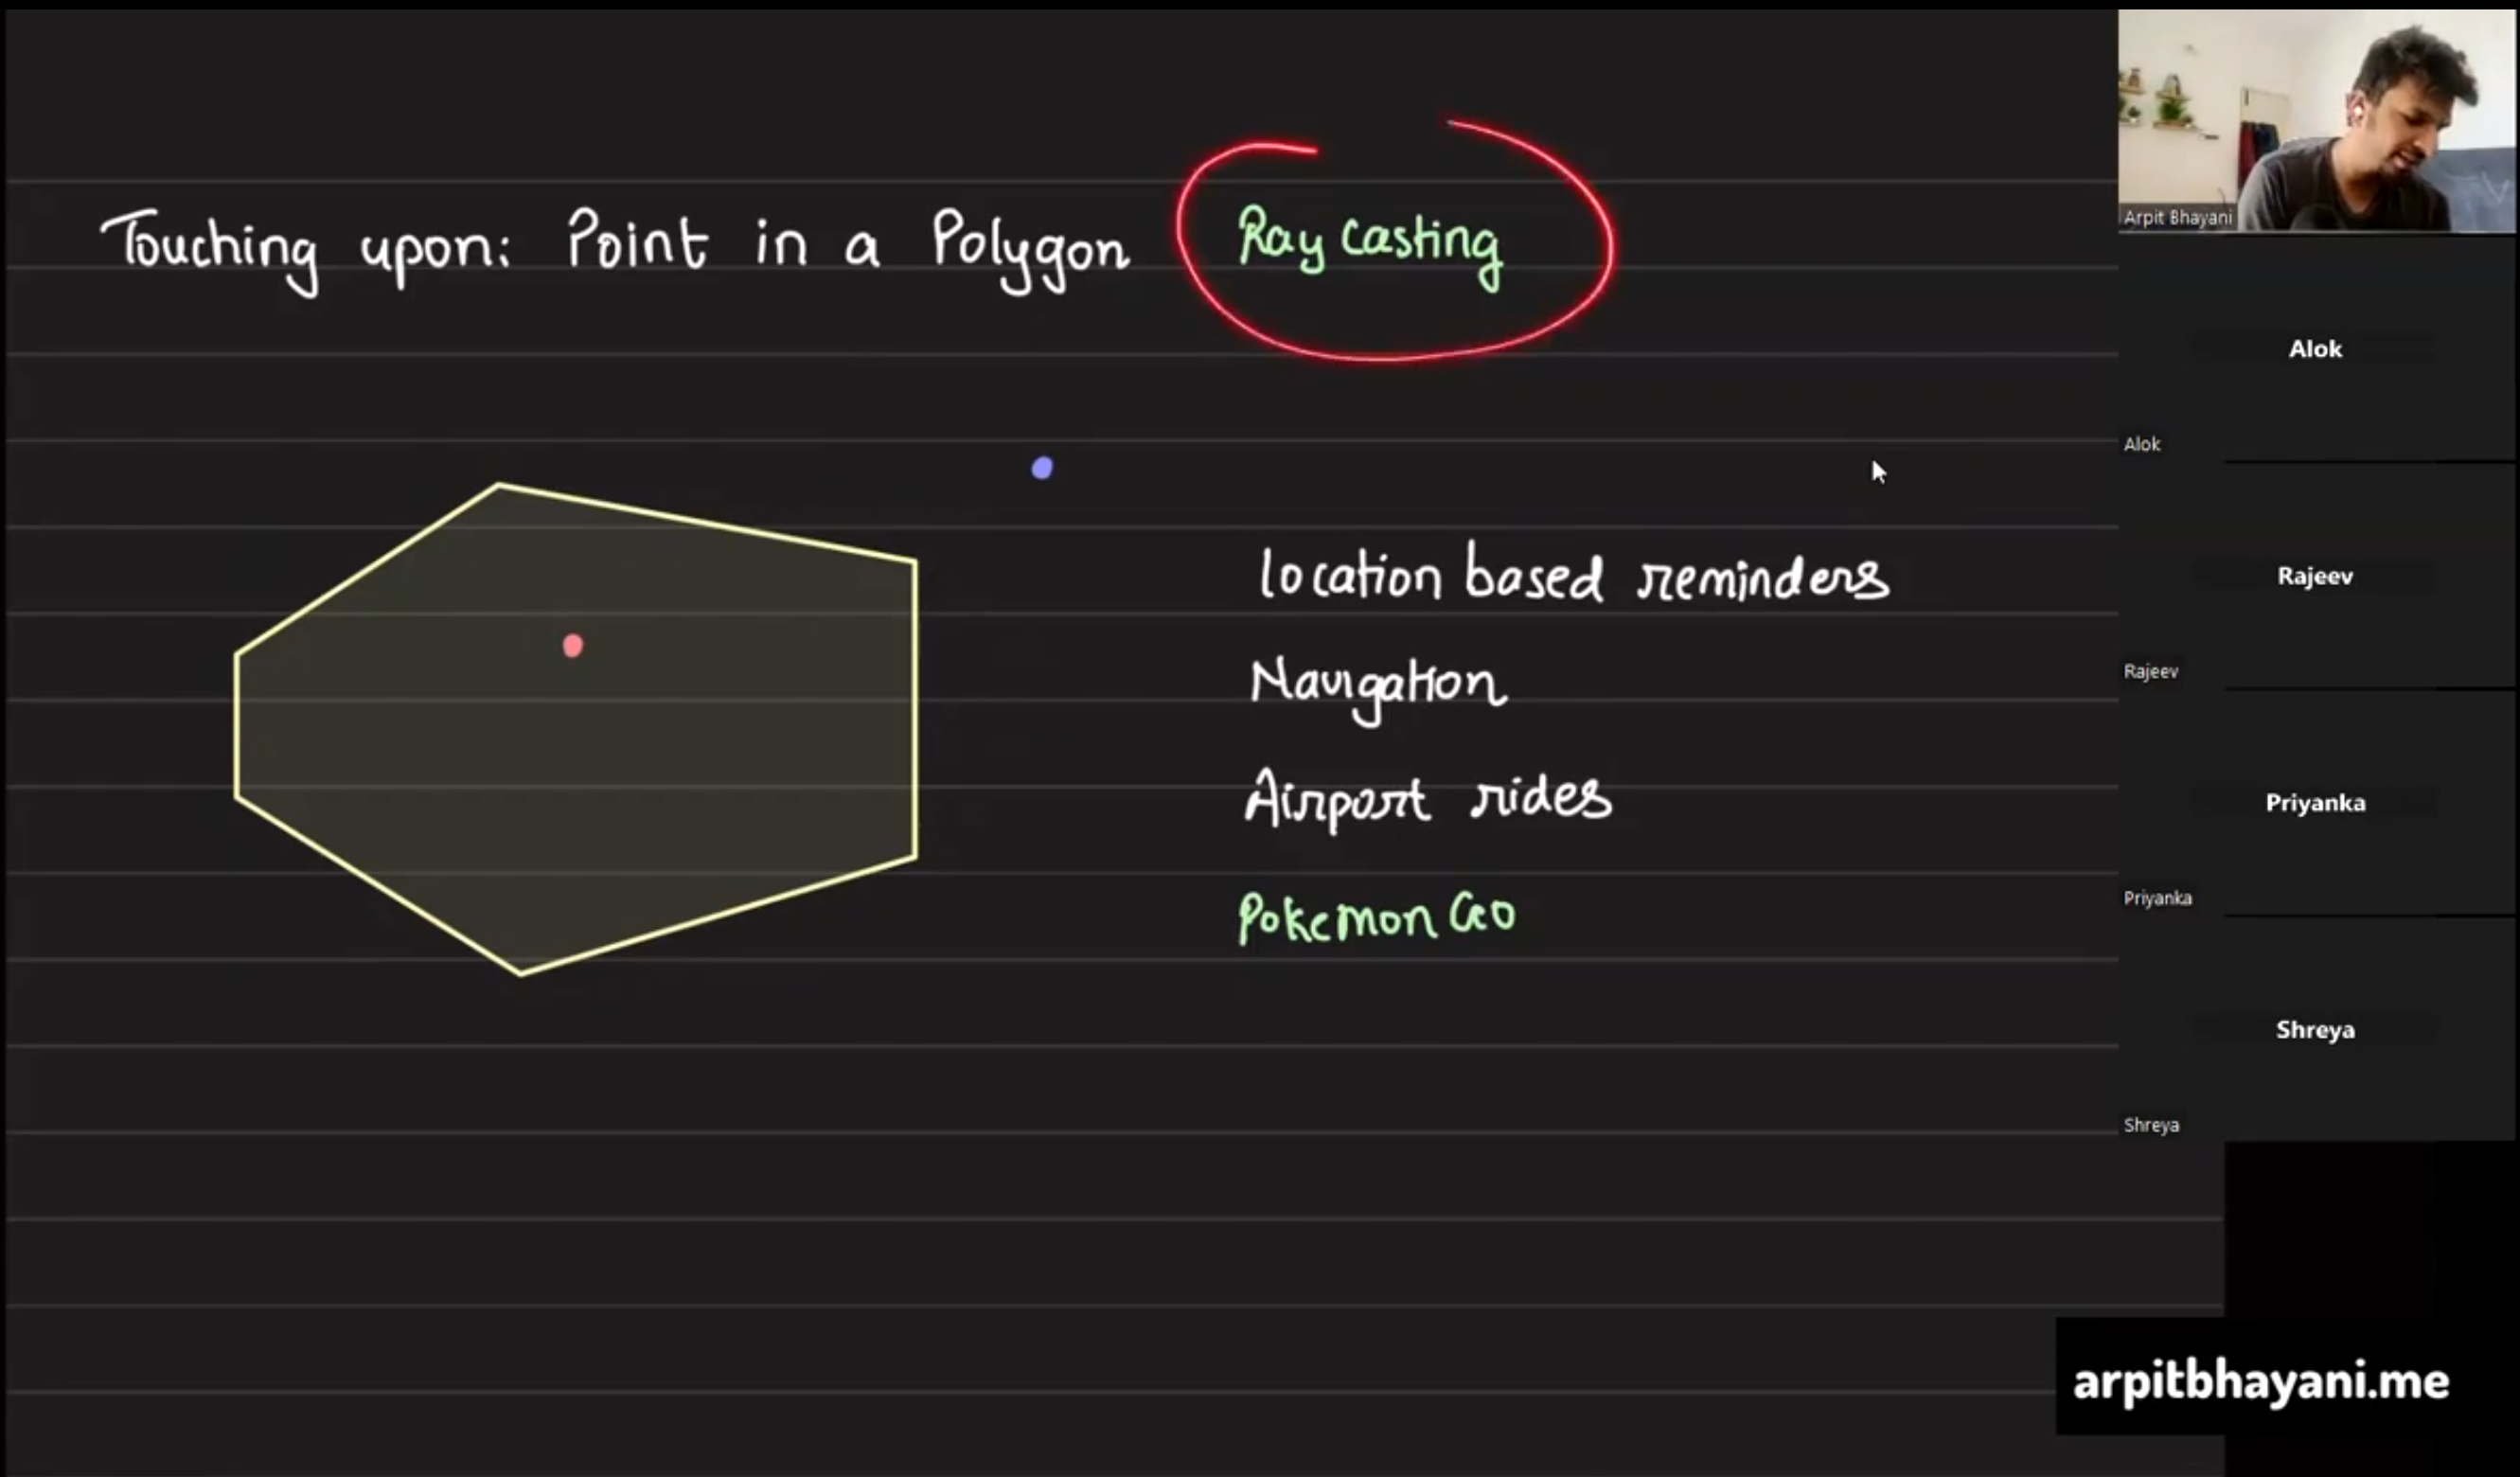 Touching upon: Point in a Polygon Ray Casting
location based reminders
Navigation
Airport rides
Pokemon Go
Arpit Bhayani
Alok
Alok
Rajeev
Rajeev
Priyanka
Priyanka
Shreya
Shreya
arpitbhayani.me